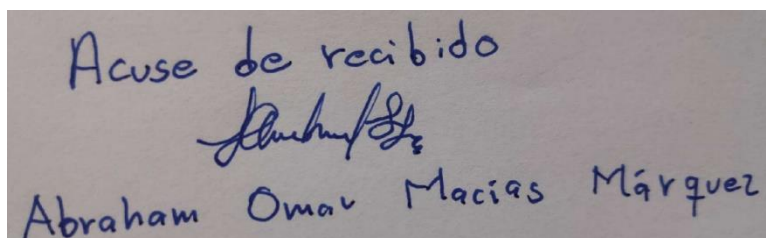 Acuse de recibido
Abraham Omar Macías Márquez